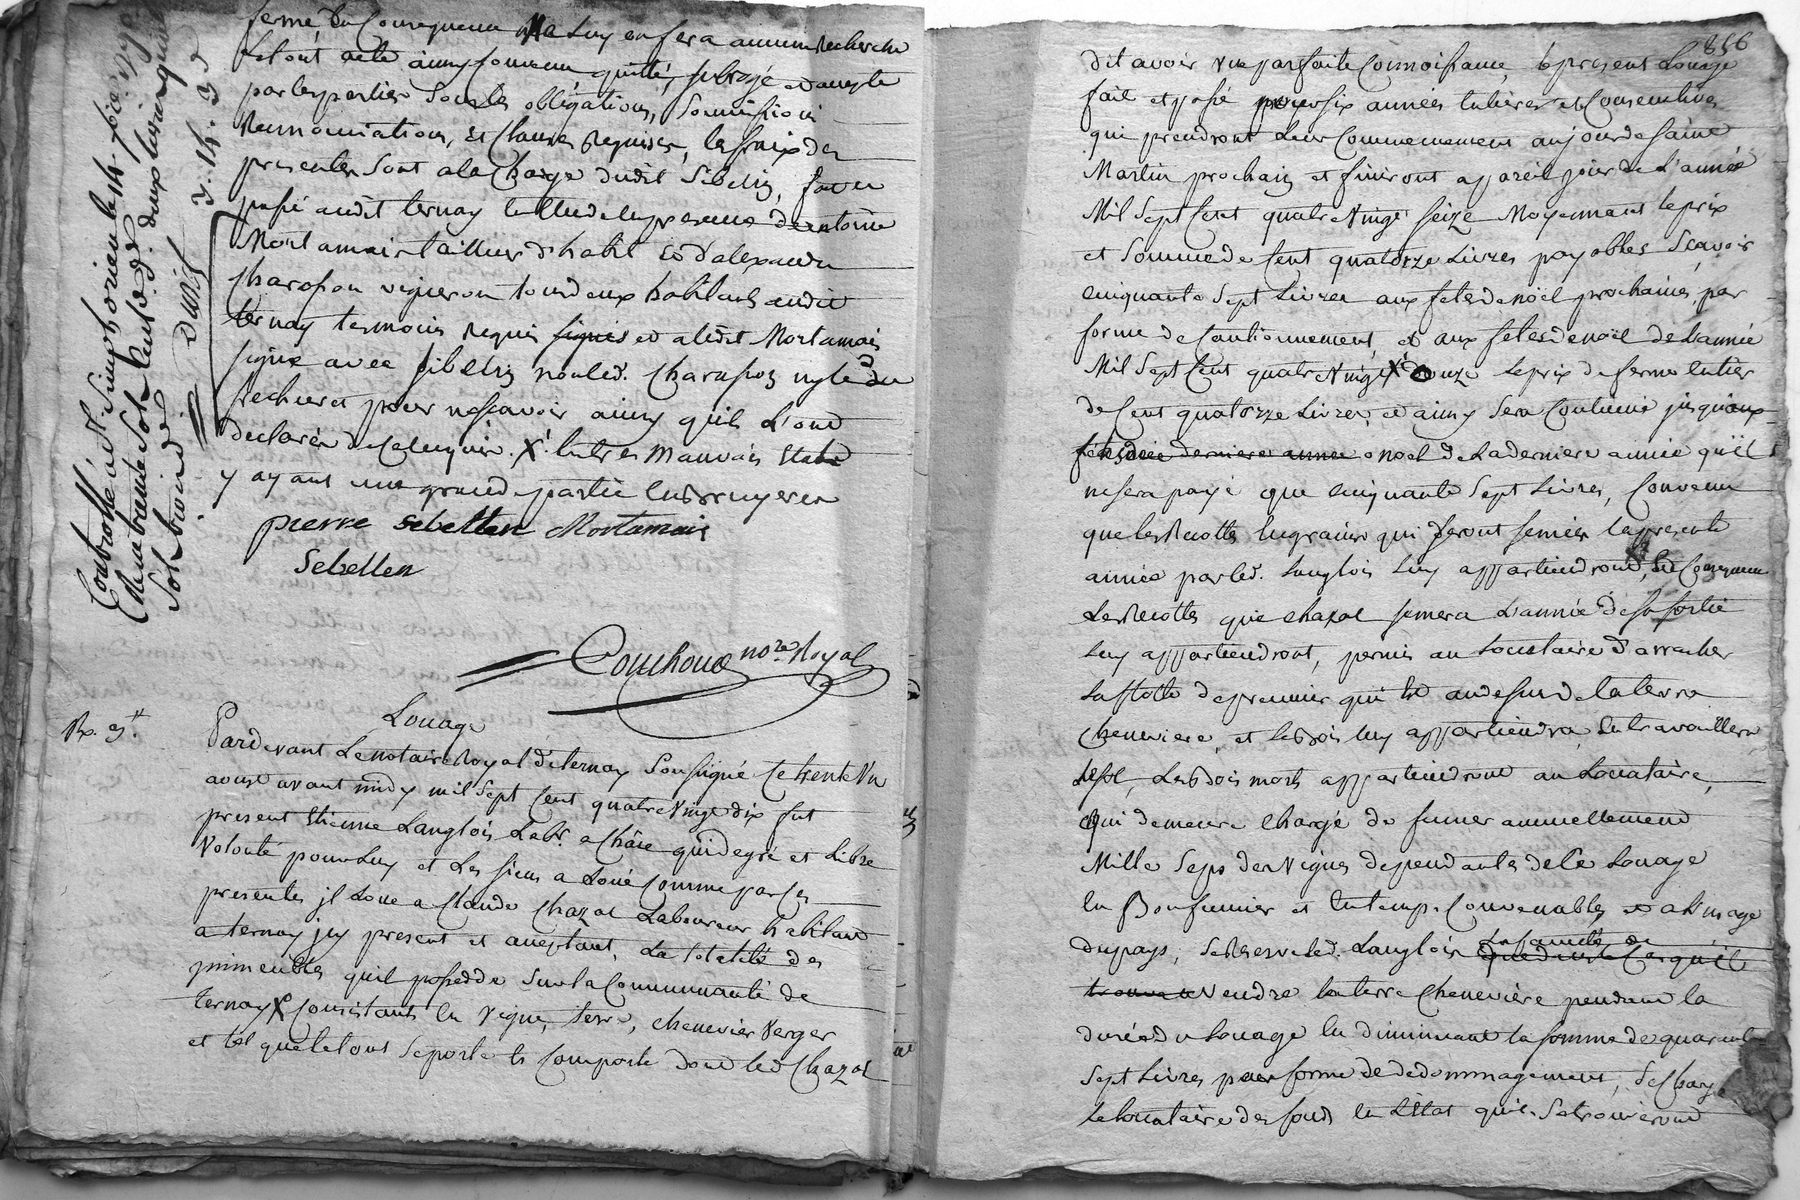 ferme En Consequence Luy en fera aucune Recherche
par lesparties Sous les obligations, Soumissions
Renonciations, et Clauses Requises, les fraix des
presentes Sont a la Charge dudit Sibellin, fait et
passé audit ternay en presence d'entoine
Mortamais tailleur d'habit et d'alexandre
Charason vigneron tous deux habitants audit
ternay temoins Requis signés et aledit Mortamais
signé avec Sibellin non led. Charason ny led
declarés de Ce enquis. X. Entres Mauvais Etat
y ayant une grande partie En Bruyeres
pierre sebellen Mortamais
Sebellen
Couchoud no.re Royal
Controllé a St Simphorien le 14
Louage
Pardevant Le notaire Royal de ternay Soussigné Ce trente Un
aoust avant midy mil Sept Cent quatre Vingt dix fut
present Etienne Langlois Lab.r a Chaie qui de gré et Libre
Volonté pour Luy et Les Siens a Loué Comme par Ces
presentes il Loue a Claude Chazot Laboureur habitant
a ternay icy present et acceptant, La totalité des
immeubles quil possedde Sur la Communauté de
ternay X Consistants En Vigne, terre, Chenevier Verger
et tel que le tout Se porte et Comporte dont led Chazot
856
dit avoir Une parfaite Connoissance, le present Louage
fait et passé pour six années Entières et Consecutives
qui prendront Leur Commencement au jour de Saint
Martin prochain et finiront a pareil jour de L'année
Mil Sept Cent quatre Vingt Seize Moyennant le prix
et Somme de Cent quatorze Livres payables Scavoir
Cinquante Sept Livres aux fetes de noël prochaines, par
forme de Cautionnement, et aux fetes de noël de L'année
Mil Sept Cent quatre Vingt X Douze Le prix de ferme Entier
de Cent quatorze Livres, et ainsy Sera Continué jusqu'aux
derniere année a noël de La derniere année qu'il
ne Sera payé que Cinquante Sept Livres, Convenu
que les Recoltes En grains qui Seront Semées La presente
année par led. Langlois Luy appartiendront, En Consequence
Les Recoltes que Chazot Semera L'année de Sa Sortie
Luy appartiendront, permis au Locataire d'arracher
La de prunier qui Est au dessus de La terre
Cheneviere, et Le Bois Luy appartiendra En travaillant
Le Sol, Les Bois morts appartiendront au Locataire,
qui demeure Chargé de fumer annuellement
Mille Seps des Vignes dependantes de Ce Louage
En Bon fumier et En temps Convenables et a L'usage
du pays, Se Reserve led. Langlois La faculté de
Vendre La terre Chenevière pendant La
durée du Louage En diminuant La Somme de quarante
Sept Livres par forme de dedommagement, Se Charge
Le Locataire des fonds En L'Etat qu'ils Se trouveront